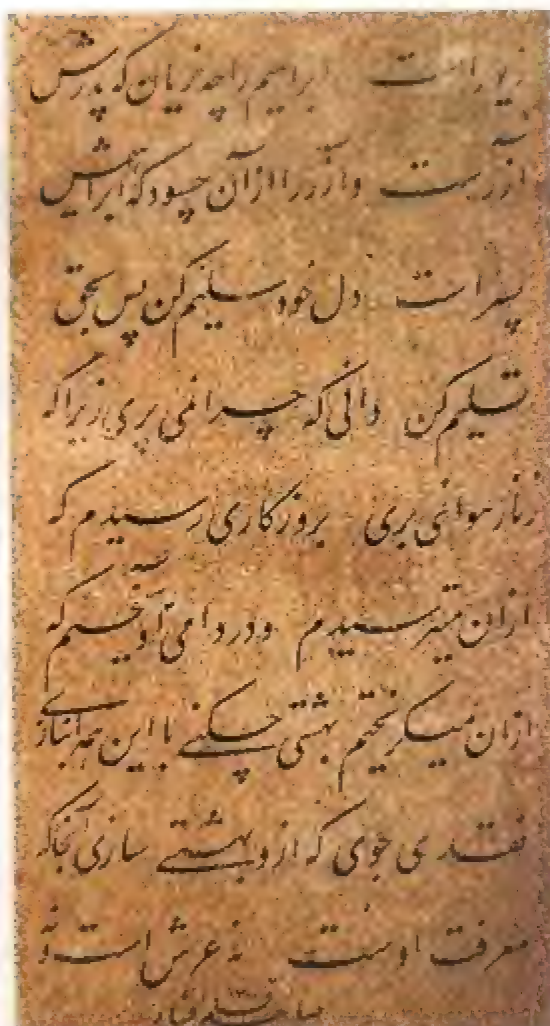 زیور است ابراهیم را چه زیان که پدرش
آزر است و آزر را ازان چه سود که ابراهیمش
پسر است دل خود سلیم کن پس بحق
تسلیم کن دانی که چرا نمی پری زیرا که
نه از هوائی پری بروزگاری رسیدم که
ازان میترسیدم و در دامی آویختم که
ازان میگریختم بهشتی چکنی با این همه انباز
نقدی جوی که ازو بهشتی سازی آنجا که
معرفت اوست نه عرش است و نه